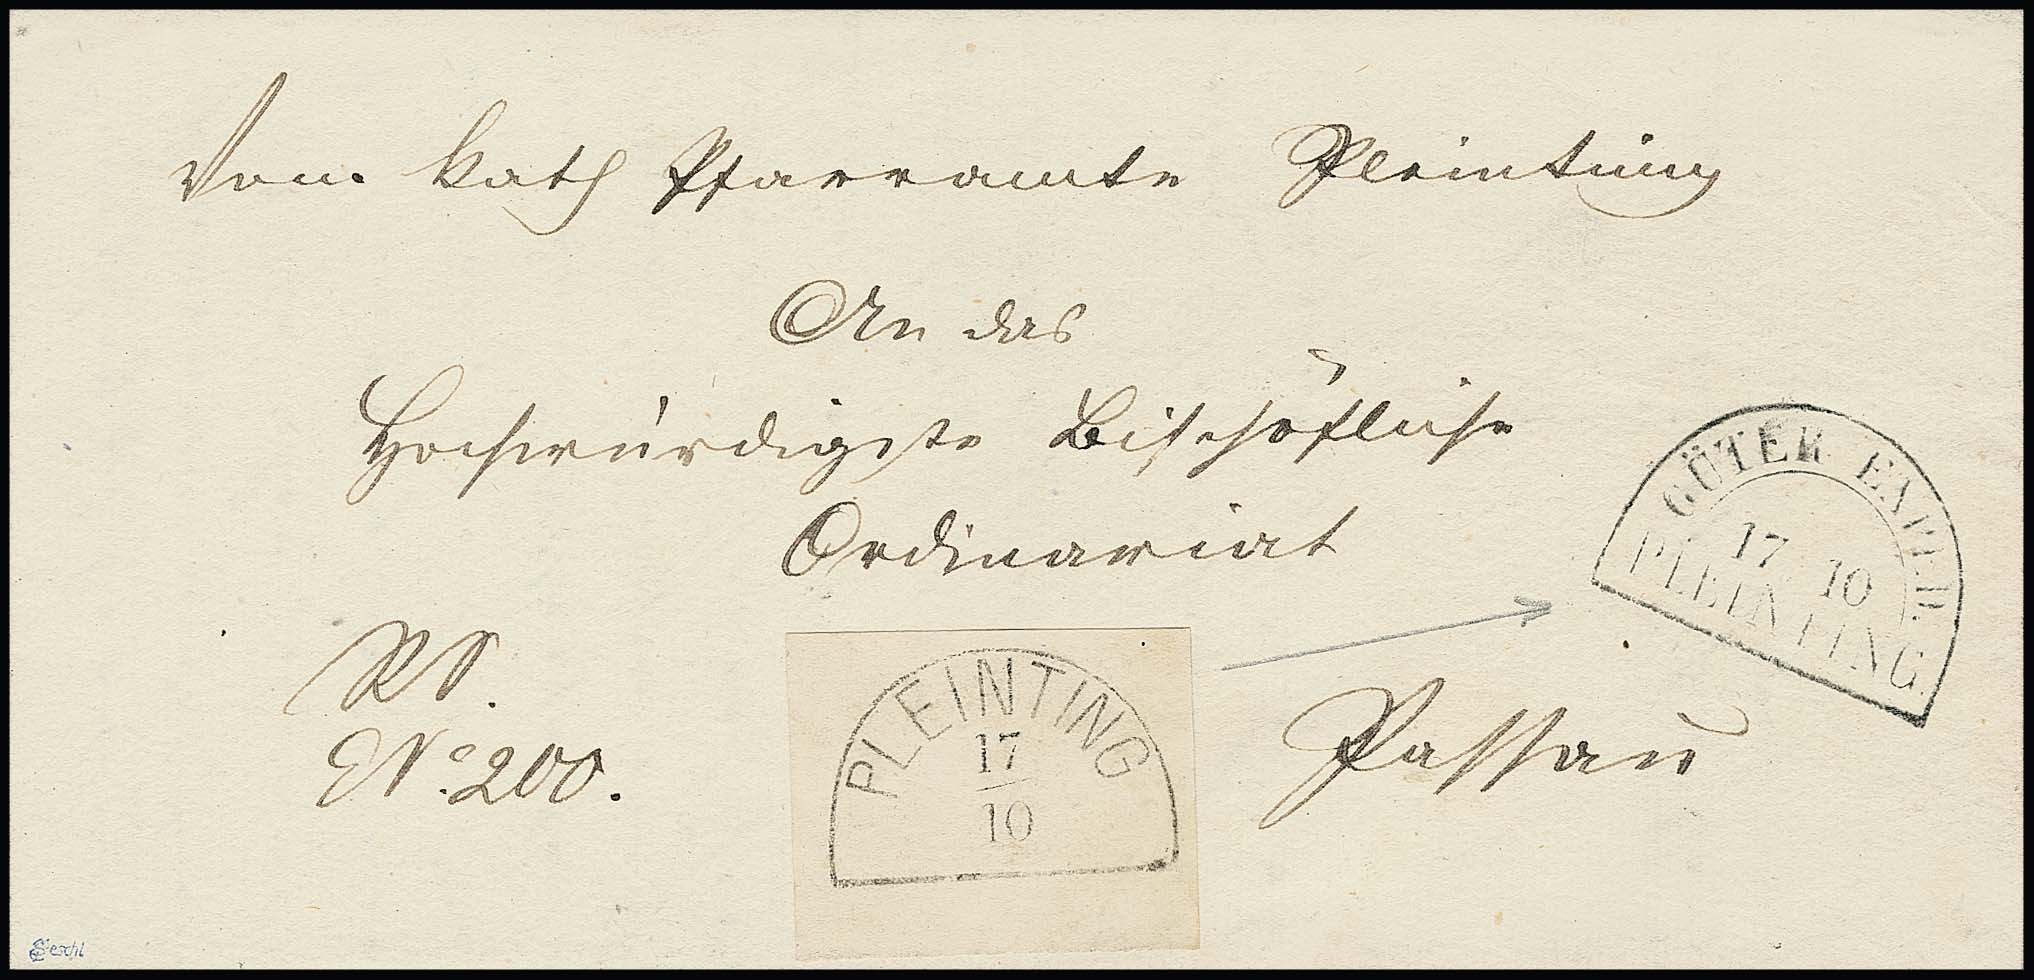 Vom. kath Pfarramte Pleinting
An das
Hochwürdigste Bischöfliche
Ordinariat
GÜTER EXPED.
17 10
PLEINTING.
RS.
No. 200.
PLEINTING
17
10
Passau